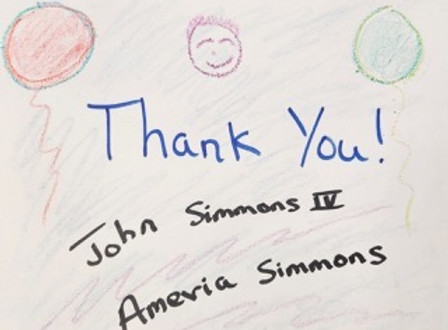 Thank You!
John Simmons IV
Ameria Simmons